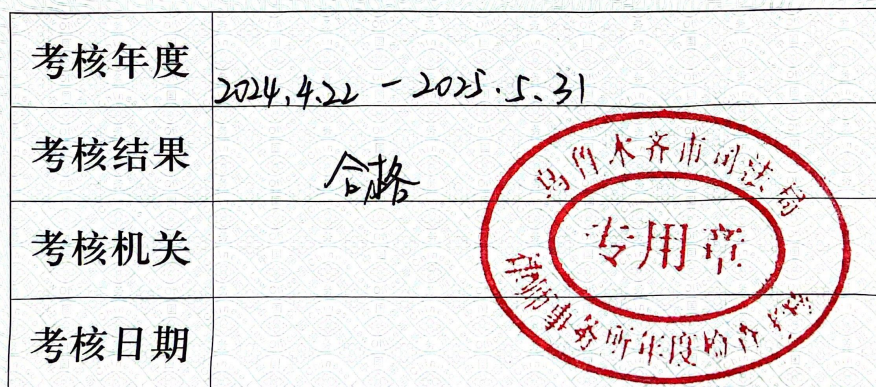 考核年度 2024.4.22 - 2025.5.31
考核结果 合格
考核机关
考核日期
乌鲁木齐市司法局
专用章
律师事务所年度检查考核